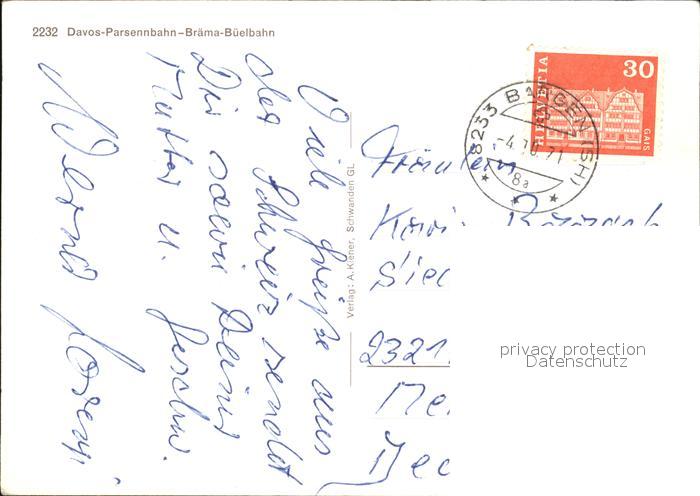 2232 Davos-Parsennbahn-Bräma-Büelbahn
Viele Grüße aus
der Schweiz sendet
Dir sowie Deiner
Mutter u. Geschw.
Bernd
Verlag: A. Kiener, Schwanden GL
HELVETIA
30
GAIS
8233 BARGEN (SH)
-4.10.71
8a
Fräulein
2321
privacy protection
Datenschutz